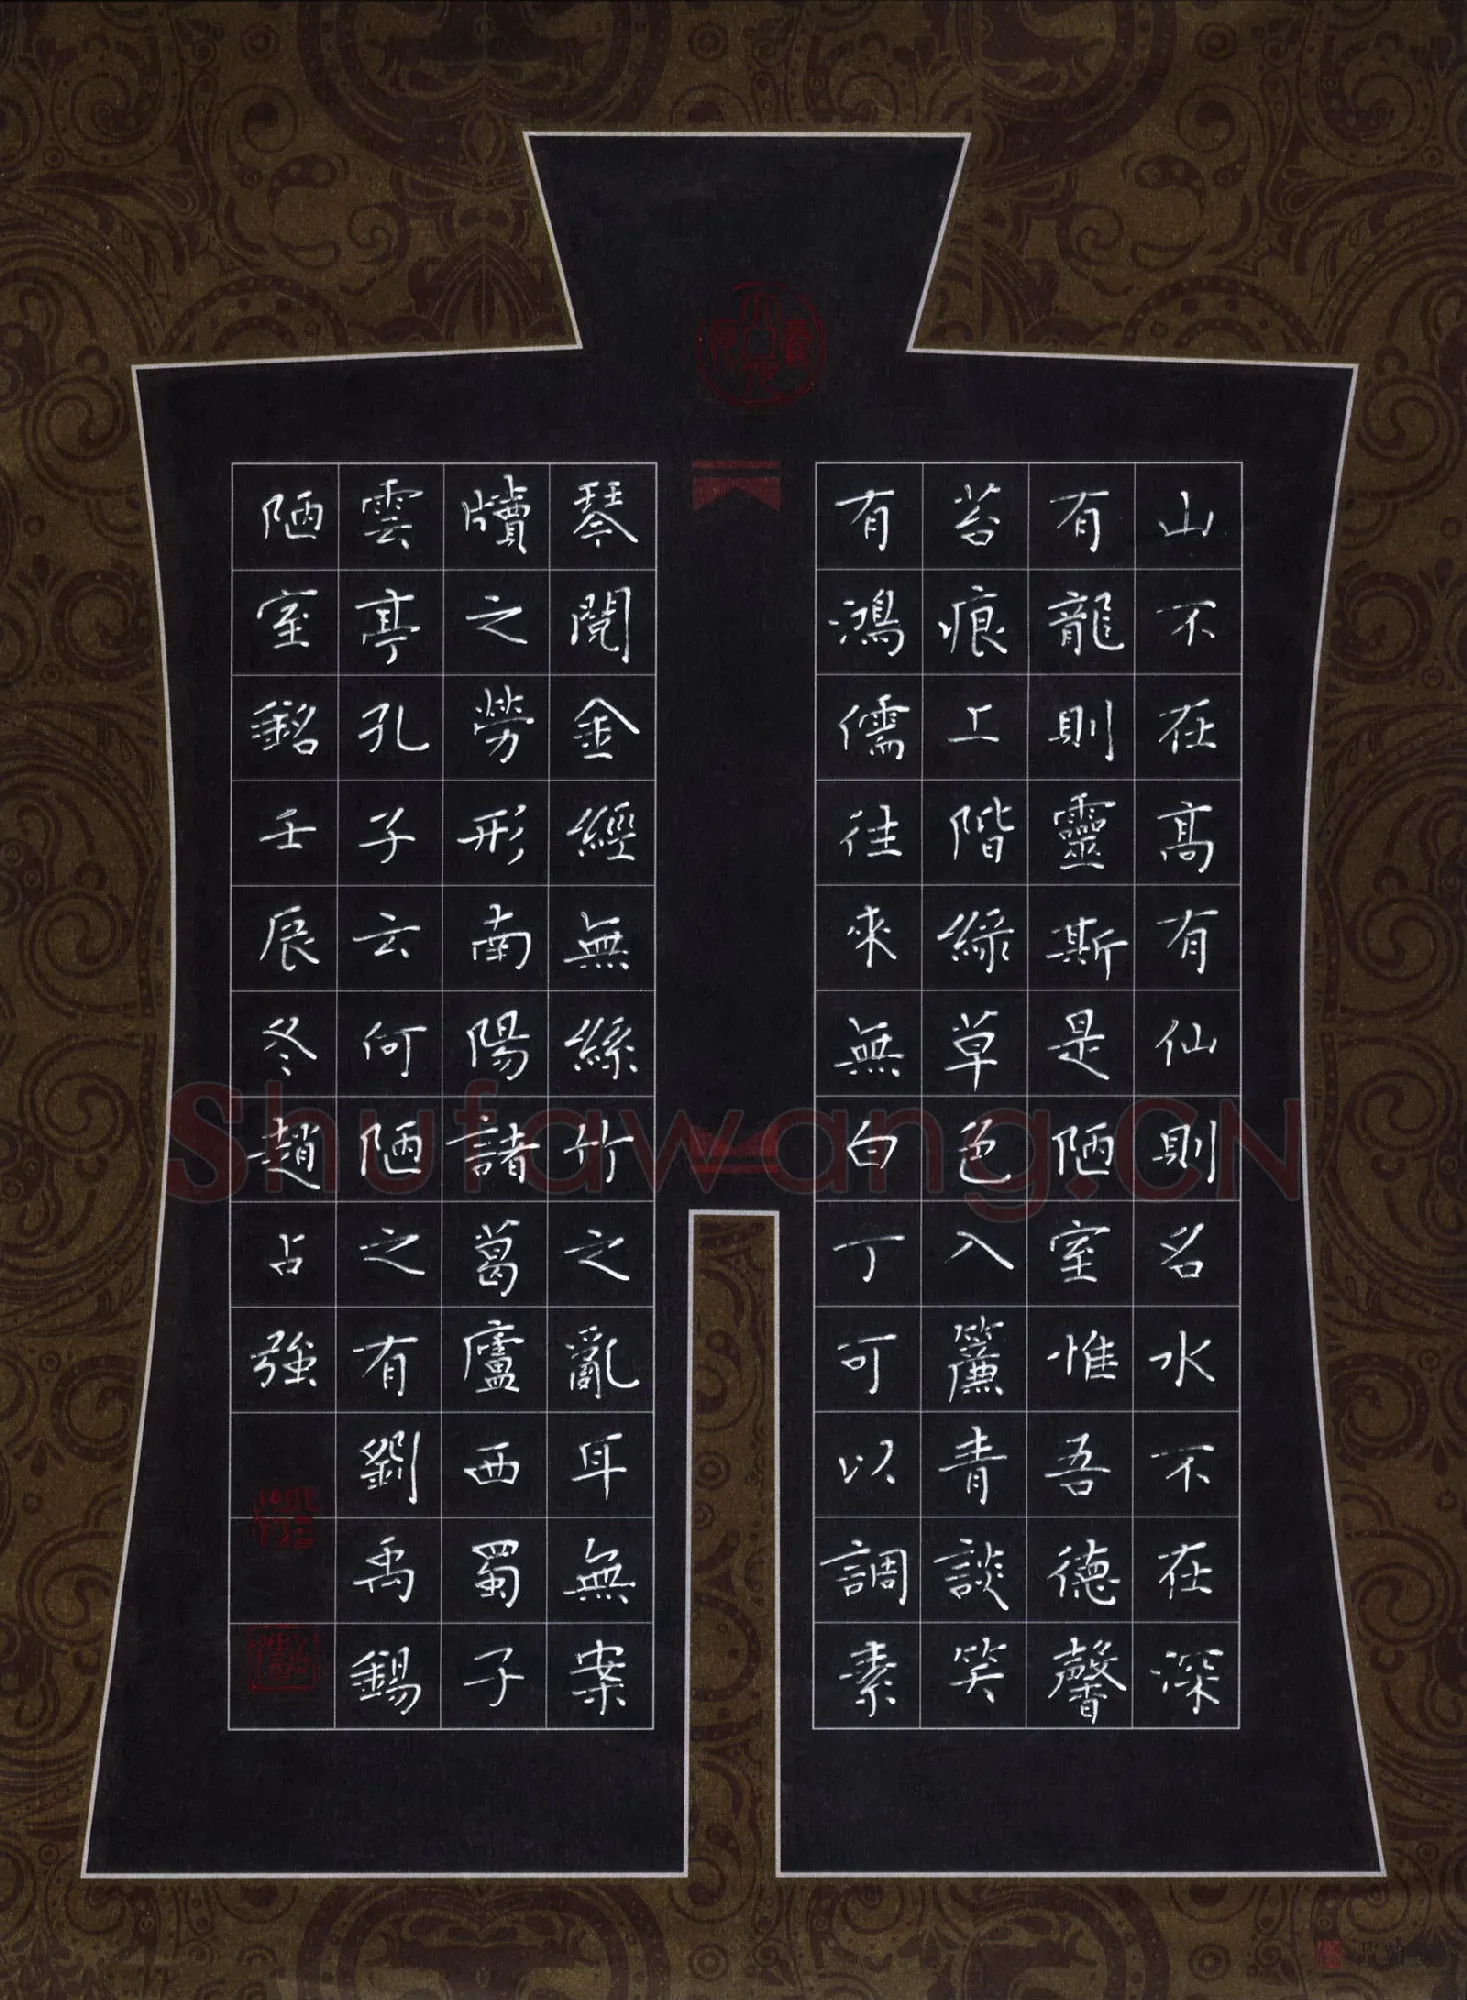 山不在高有仙則名水不在深
有龍則靈斯是陋室惟吾德馨
苔痕上階綠草色入簾青談笑
有鴻儒往來無白丁可以調素
琴閱金經無絲竹之亂耳無案
牘之勞形南陽諸葛廬西蜀子
雲亭孔子云何陋之有劉禹錫
陋室銘壬辰冬趙占強
Shufawang.CN